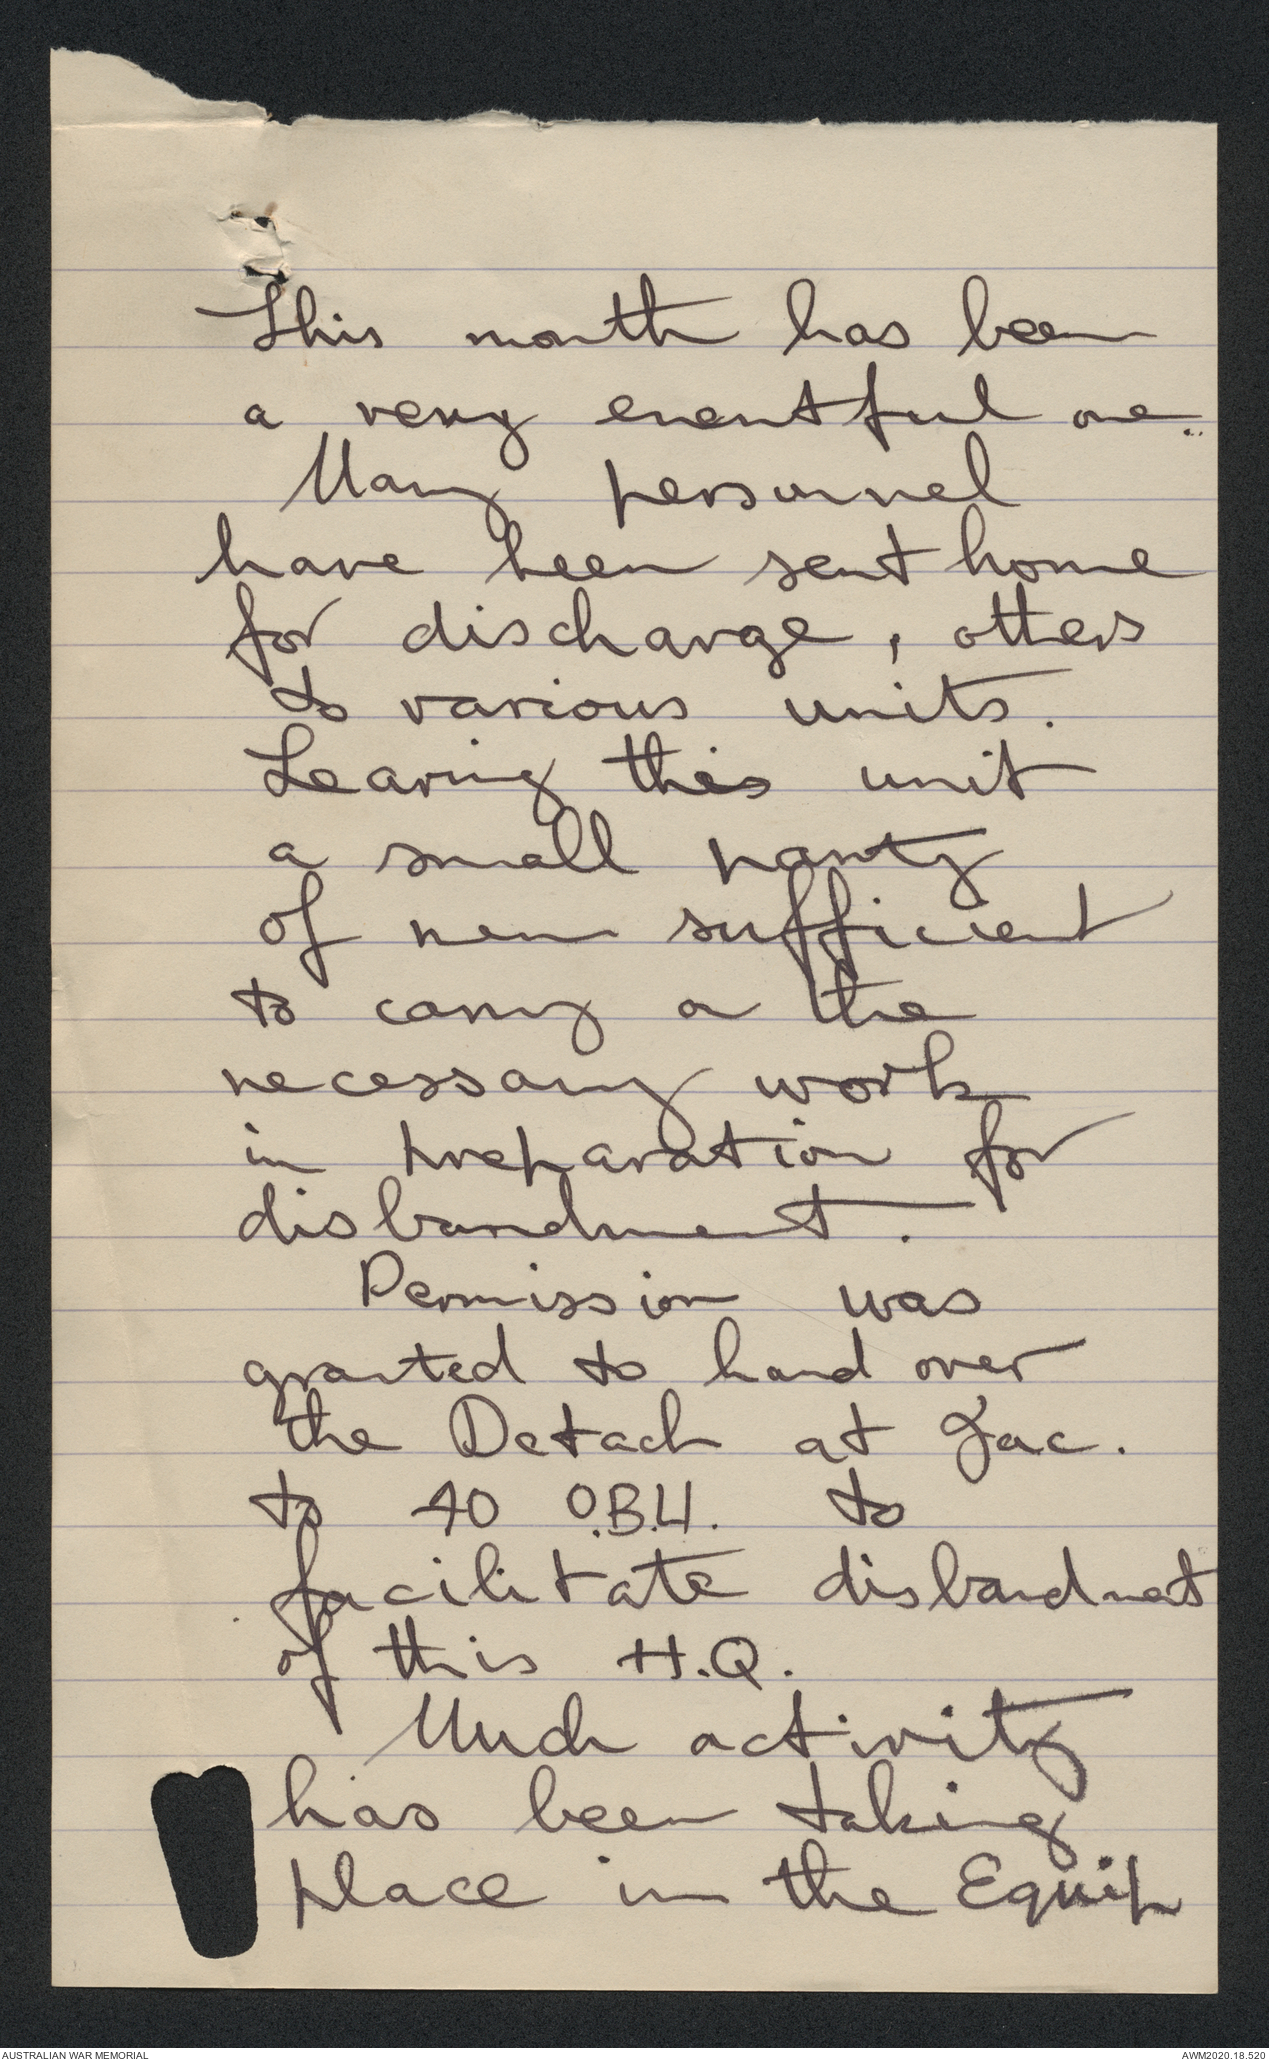 This month has been
a very eventful one..
Many personnel
have been sent home
for discharge, others
to various units.
Leaving this unit
a small party
of men sufficient
to carry on the
necessary work
in preparation for
disbandment.
Permission was
granted to hand over
the Detach at Jac.
to 40 O.B.U. to
facilitate disbandment
of this H.Q.
Much activity
has been taking
place in the Equip
AUSTRALIAN WAR MEMORIAL
AWM2020.18.520